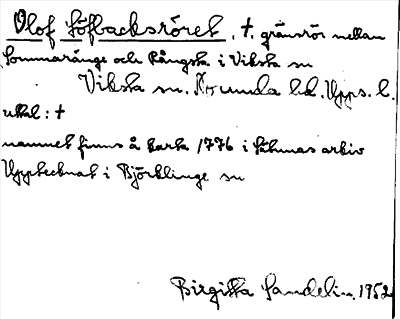 Olof Löfbacksröret, †. gränsrör mellan
Sommaränge och Rångsta i Viksta sn
Viksta sn. Norunda hd. Upps. l.
uttal: †
namnet finns å karta 1776 i häradsarkiv
Upptecknat i Björklinge sn
Birgitta Sandelin. 1952